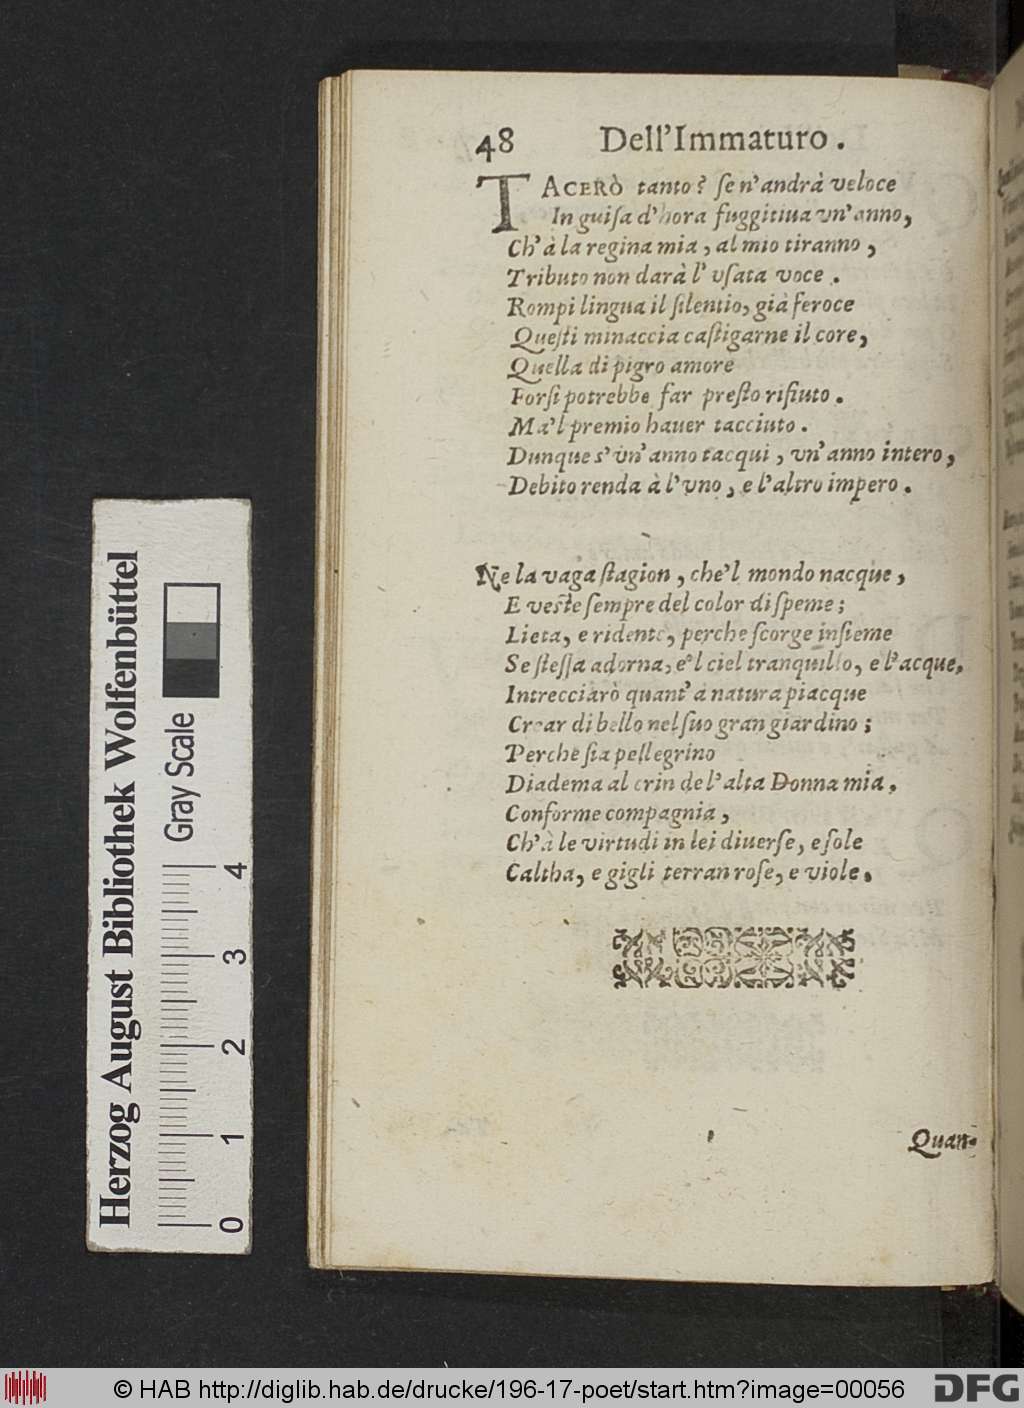 48 Dell'Immaturo.
TACERÒ tanto? ſe n'andrà veloce
In guiſa d'hora fuggitiua vn'anno,
Ch'à la regina mia, al mio tiranno,
Tributo non darà l'vſata voce.
Rompi lingua il ſilentio, già feroce
Queſti minaccia caſtigarne il core,
Quella di pigro amore
Forſi potrebbe far preſto rifiuto.
Ma'l premio hauer tacciuto.
Dunque s'vn'anno tacqui, vn'anno intero,
Debito renda à l'vno, e l'altro impero.
Ne la vaga ſtagion, che'l mondo nacque,
E veſte ſempre del color di ſpeme;
Lieta, e ridente, perche ſcorge inſieme
Se ſteſſa adorna, e'l ciel tranquillo, e l'acque,
Intrecciarò quant'à natura piacque
Crear di bello nel ſuo gran giardino;
Perche ſia pellegrino
Diadema al crin de l'alta Donna mia,
Conforme compagnia,
Ch'à le virtudi in lei diuerſe, e ſole
Caltha, e gigli terran roſe, e viole.
Quan-
Herzog August Bibliothek Wolfenbüttel
Gray Scale
0 1 2 3 4
© HAB http://diglib.hab.de/drucke/196-17-poet/start.htm?image=00056
DFG